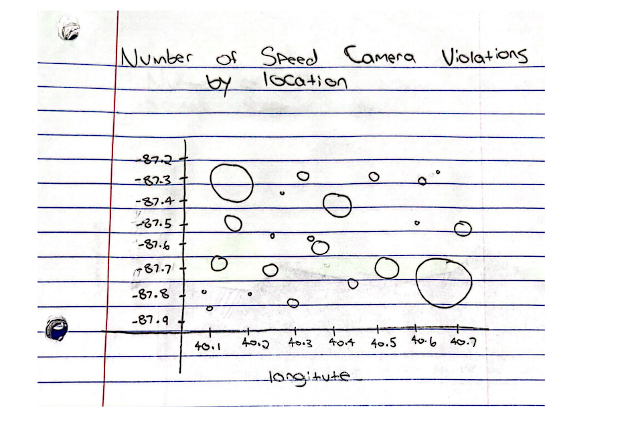 Number of Speed Camera Violations
by location
-87.2
-87.3
-87.4
-87.5
-87.6
-87.7
-87.8
-87.9
40.1 40.2 40.3 40.4 40.5 40.6 40.7
longitute